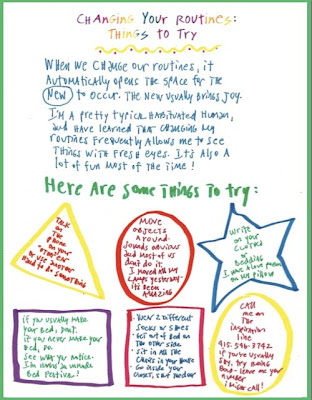 Changing Your Routines:
Things to Try
When we change our routines, it
automatically opens the space for the
New to occur. The new usually brings joy.
I'm a pretty typical habituated human,
and have learned that changing my
routines frequently allows me to see
things with fresh eyes. It's also a
lot of fun most of the time!
Here Are Some Things to try:
Talk
on the
phone
on your
or use another
hand to do something
Move
objects
around.
Sounds obvious
and most of us
don't do it.
I moved all my
lamps yesterday-
it's been
amazing
Write
on your
or
bedding
I have a poem
on my pillow
if you usually make
your bed, don't.
if you never make your
bed, do.
see what you notice.
I'm using an unmade
bed
· Wear 2 different
socks or shoes
· Get out of bed on
the other side
· sit in all the
chairs in your house
· Go inside your
closet,
Call
me on
The
inspiration
line
415 546-3742
if you're usually
shy, try being
bold - leave me your
number